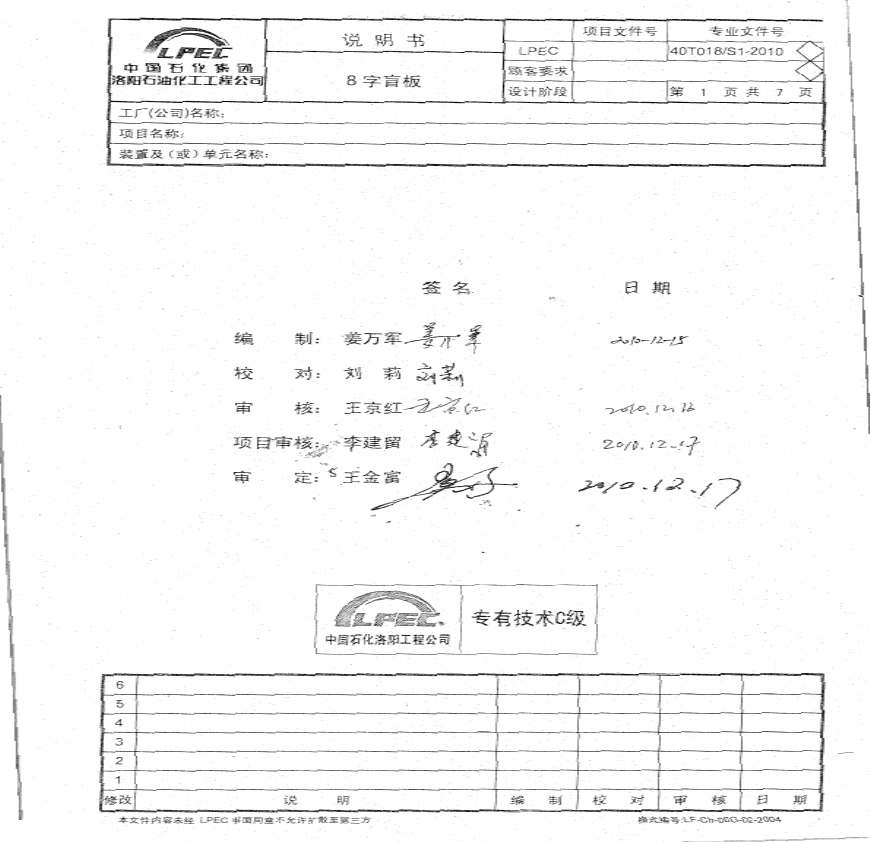 LPEC
中国石化集团
洛阳石油化工工程公司
说 明 书
8 字盲板
项目文件号 专业文件号
LPEC 40T018/S1-2010
顾客要求
设计阶段 第 1 页 共 7 页
工厂(公司)名称:
项目名称:
装置及(或)单元名称:
签 名 日 期
编 制: 姜万军 姜万军 2010-12-15
校 对: 刘 莉 刘莉
审 核: 王京红 王京红 2010.12.16
项目审核: 李建留 2010.12.17
审 定: 王金富 2010.12.17
LPEC
中国石化洛阳工程公司
专有技术C级
6
5
4
3
2
1
修改 说 明 编 制 校 对 审 核 日 期
本文件内容未经 LPEC 书面同意不允许扩散至第三方
格式编号: